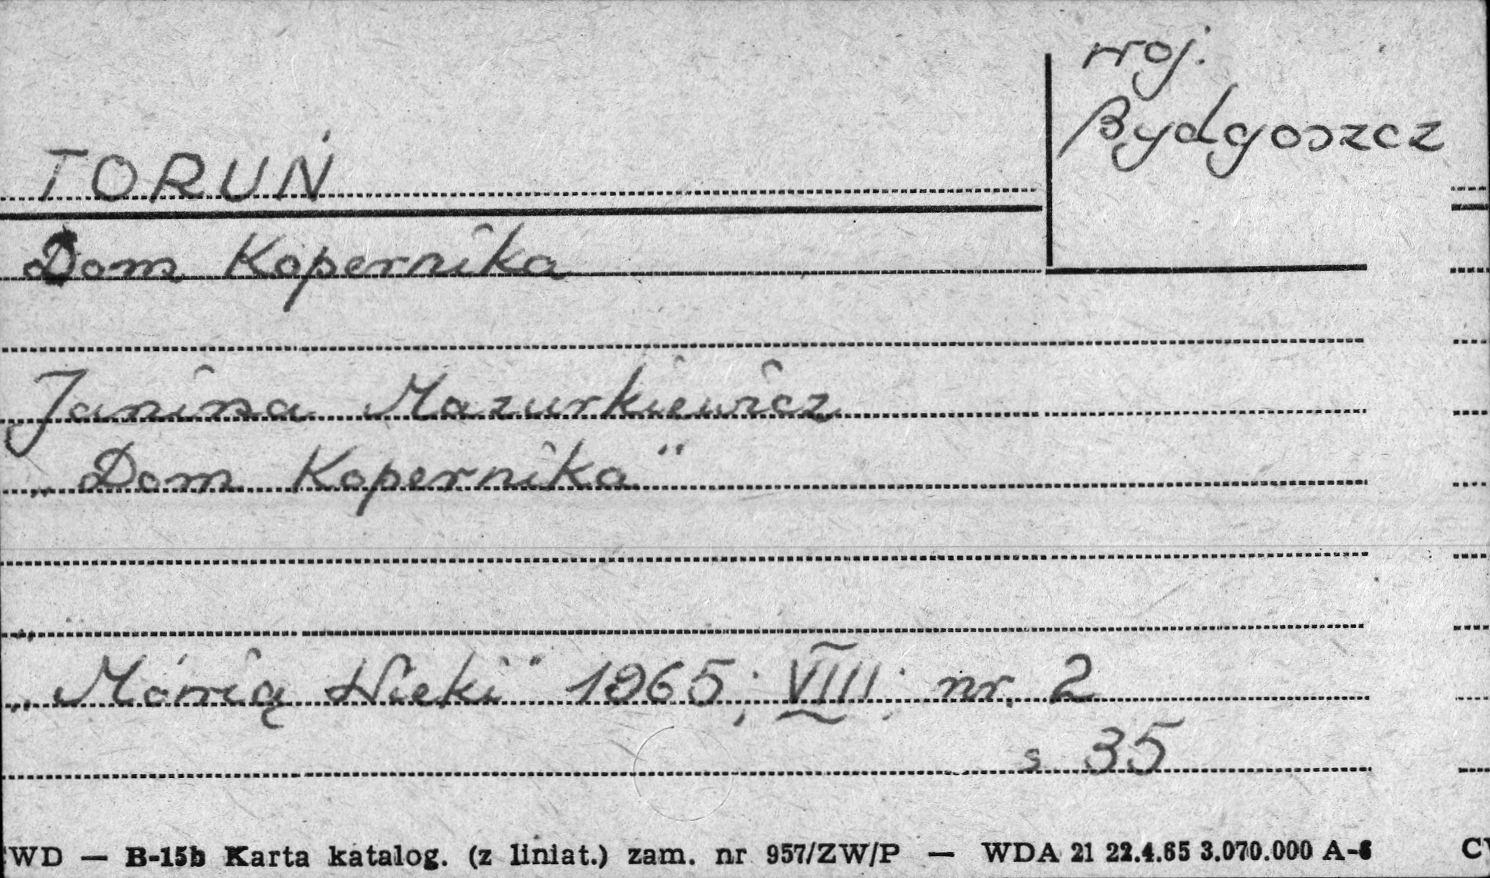 woj.
Bydgoszcz
TORUŃ
Dom Kopernika
Janina Mazurkiewicz
„Dom Kopernika"
„Mówią Wieki" 1965; VIII; nr. 2
s 35
WD — B-15b Karta katalog. (z liniat.) zam. nr 957/ZW/P — WDA 21 22.4.65 3.070.000 A-6